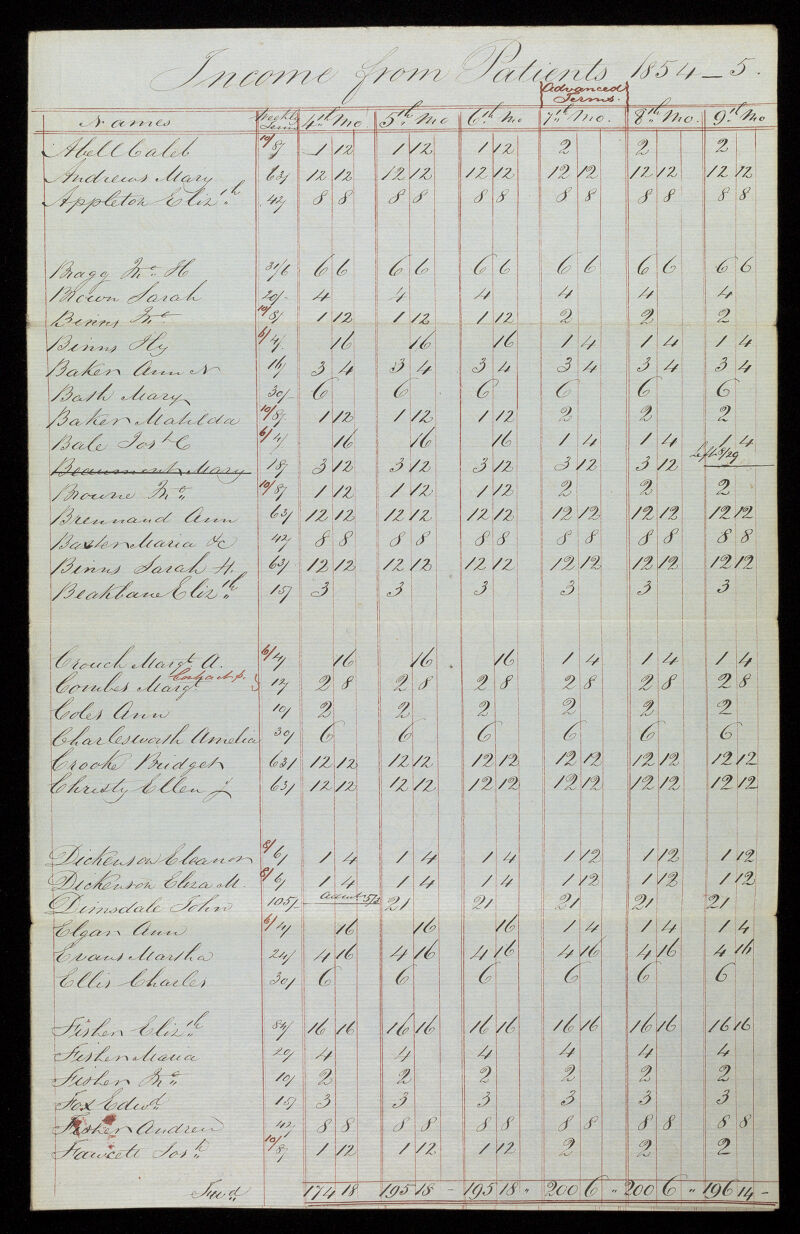 Income from Patients 1854 – 5.
Advanced
Terms.
Names Weekly Terms 4th Mo 5th Mo 6th Mo 7th Mo. 8th Mo. 9th Mo
Abell Caleb 10/ 8/ 1 12 1 12 1 12 2 2 2
Andrews Mary 63/ 12 12 12 12 12 12 12 12 12 12 12 12
Appleton Elizth 42/ 8 8 8 8 8 8 8 8 8 8 8 8
Bragg Jno H 31/6 6 6 6 6 6 6 6 6 6 6 6 6
Brown Sarah 20/- 4 4 4 4 4 4
Binns Jno 10/ 8/ 1 12 1 12 1 12 2 2 2
Binns Hy 6/ 4/ 16 16 16 1 4 1 4 1 4
Baker Ann N 16/ 3 4 3 4 3 4 3 4 3 4 3 4
Bath Mary 30/- 6 6 6 6 6 6
Baker Matilda 10/ 8/ 1 12 1 12 1 12 2 2 2
Bale Josh C 6/ 4/ 16 16 16 1 4 1 4 1 4
Beaumont Mary 18/ 3 12 3 12 3 12 3 12 3 12 left 8/29
Browne Jno 10/ 8/ 1 12 1 12 1 12 2 2 2
Brennand Ann 63/ 12 12 12 12 12 12 12 12 12 12 12 12
Baxter Maria &c 42/ 8 8 8 8 8 8 8 8 8 8 8 8
Binns Sarah H. 63/ 12 12 12 12 12 12 12 12 12 12 12 12
Beakbane Elizth 15/ 3 3 3 3 3 3
Crouch Margt A. 6/ 4/ 16 16 16 1 4 1 4 1 4
Combes Margt 12/ 2 8 2 8 2 8 2 8 2 8 2 8
Coles Ann 10/ 2 2 2 2 2 2
Charlesworth Amelia 30/ 6 6 6 6 6 6
Crooke Bridget 63/ 12 12 12 12 12 12 12 12 12 12 12 12
Christy Ellen J 63/ 12 12 12 12 12 12 12 12 12 12 12 12
Dickenson Eleanor 8/ 6/ 1 4 1 4 1 4 1 12 1 12 1 12
Dickenson Eliza M. 8/ 6/ 1 4 1 4 1 4 1 12 1 12 1 12
Dimsdale John 105/- 21 21 21 21 21
Elgar Ann 6/ 4/ 16 16 16 1 4 1 4 1 4
Evans Martha 24/ 4 16 4 16 4 16 4 16 4 16 4 16
Ellis Charles 30/ 6 6 6 6 6 6
Fisher Elizth 84/ 16 16 16 16 16 16 16 16 16 16 16 16
Fisher Maria 20/ 4 4 4 4 4 4
Fisher Jno 10/ 2 2 2 2 2 2
Fox Edwd 15/ 3 3 3 3 3 3
Fisher Andrew 42/ 8 8 8 8 8 8 8 8 8 8 8 8
Fawcett Josh 10/ 8/ 1 12 1 12 1 12 2 2 2
Fwd 174 18 195 18 - 195 18 " 200 6 " 200 6 " 196 14 -